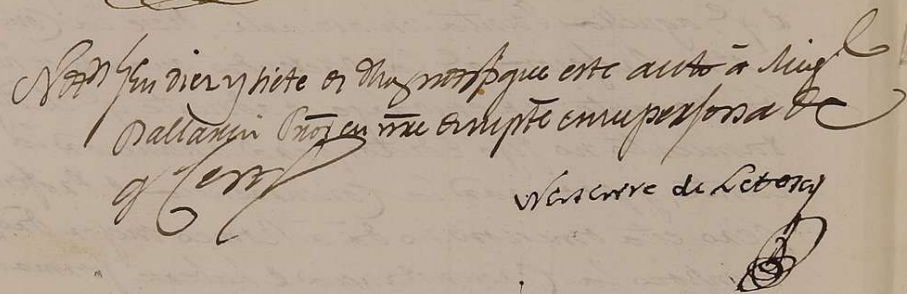 Not.n En diez y siete de dho notifique este auto a Mig.l
Ballarin Pror en nre de su pte en su persona de
q Certf
de Letosa